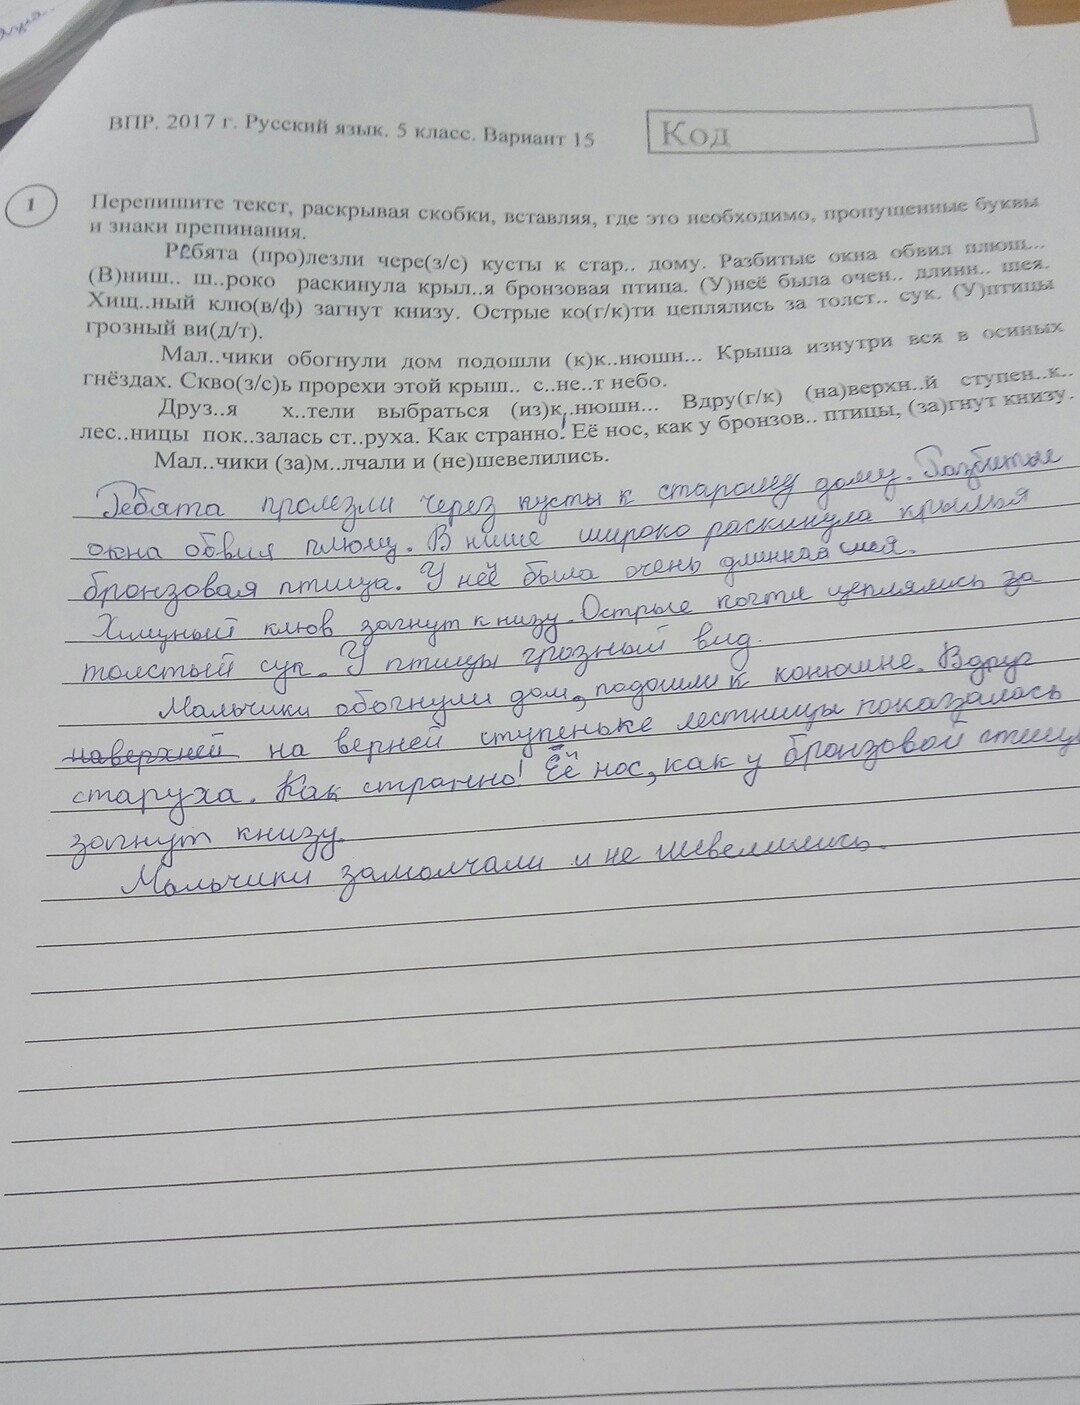 ВПР. 2017 г. Русский язык. 5 класс. Вариант 15
Код
1
Перепишите текст, раскрывая скобки, вставляя, где это необходимо, пропущенные буквы
и знаки препинания.
Ребята (про)лезли чере(з/с) кусты к стар.. дому. Разбитые окна обвил плющ...
(В)ниш.. ш..роко раскинула крыл..я бронзовая птица. (У)неё была очен.. длинн.. шея.
Хищ..ный клю(в/ф) загнут книзу. Острые ко(г/к)ти цеплялись за толст.. сук. (У)птицы
грозный ви(д/т).
Мал..чики обогнули дом подошли (к)к..нюшн... Крыша изнутри вся в осиных
гнёздах. Скво(з/с)ь прорехи этой крыш.. с..не..т небо.
Друз..я х..тели выбраться (из)к..нюшн... Вдру(г/к) (на)верхн..й ступен..к..
лес..ницы пок..залась ст..руха. Как странно! Её нос, как у бронзов.. птицы, (за)гнут книзу.
Мал..чики (за)м..лчали и (не)шевелились.
Ребята пролезли через кусты к старому дому. Разбитые
окна обвил плющ. В нише широко раскинула крылья
бронзовая птица. У неё была очень длинная шея.
Хищный клюв загнут книзу. Острые когти цеплялись за
толстый сук. У птицы грозный вид.
Мальчики обогнули дом, подошли к конюшне. Вдруг
наверхней на верней ступеньке лестницы показалась
старуха. Как странно! Её нос, как у бронзовой птицы
загнут книзу.
Мальчики замолчали и не шевелились.